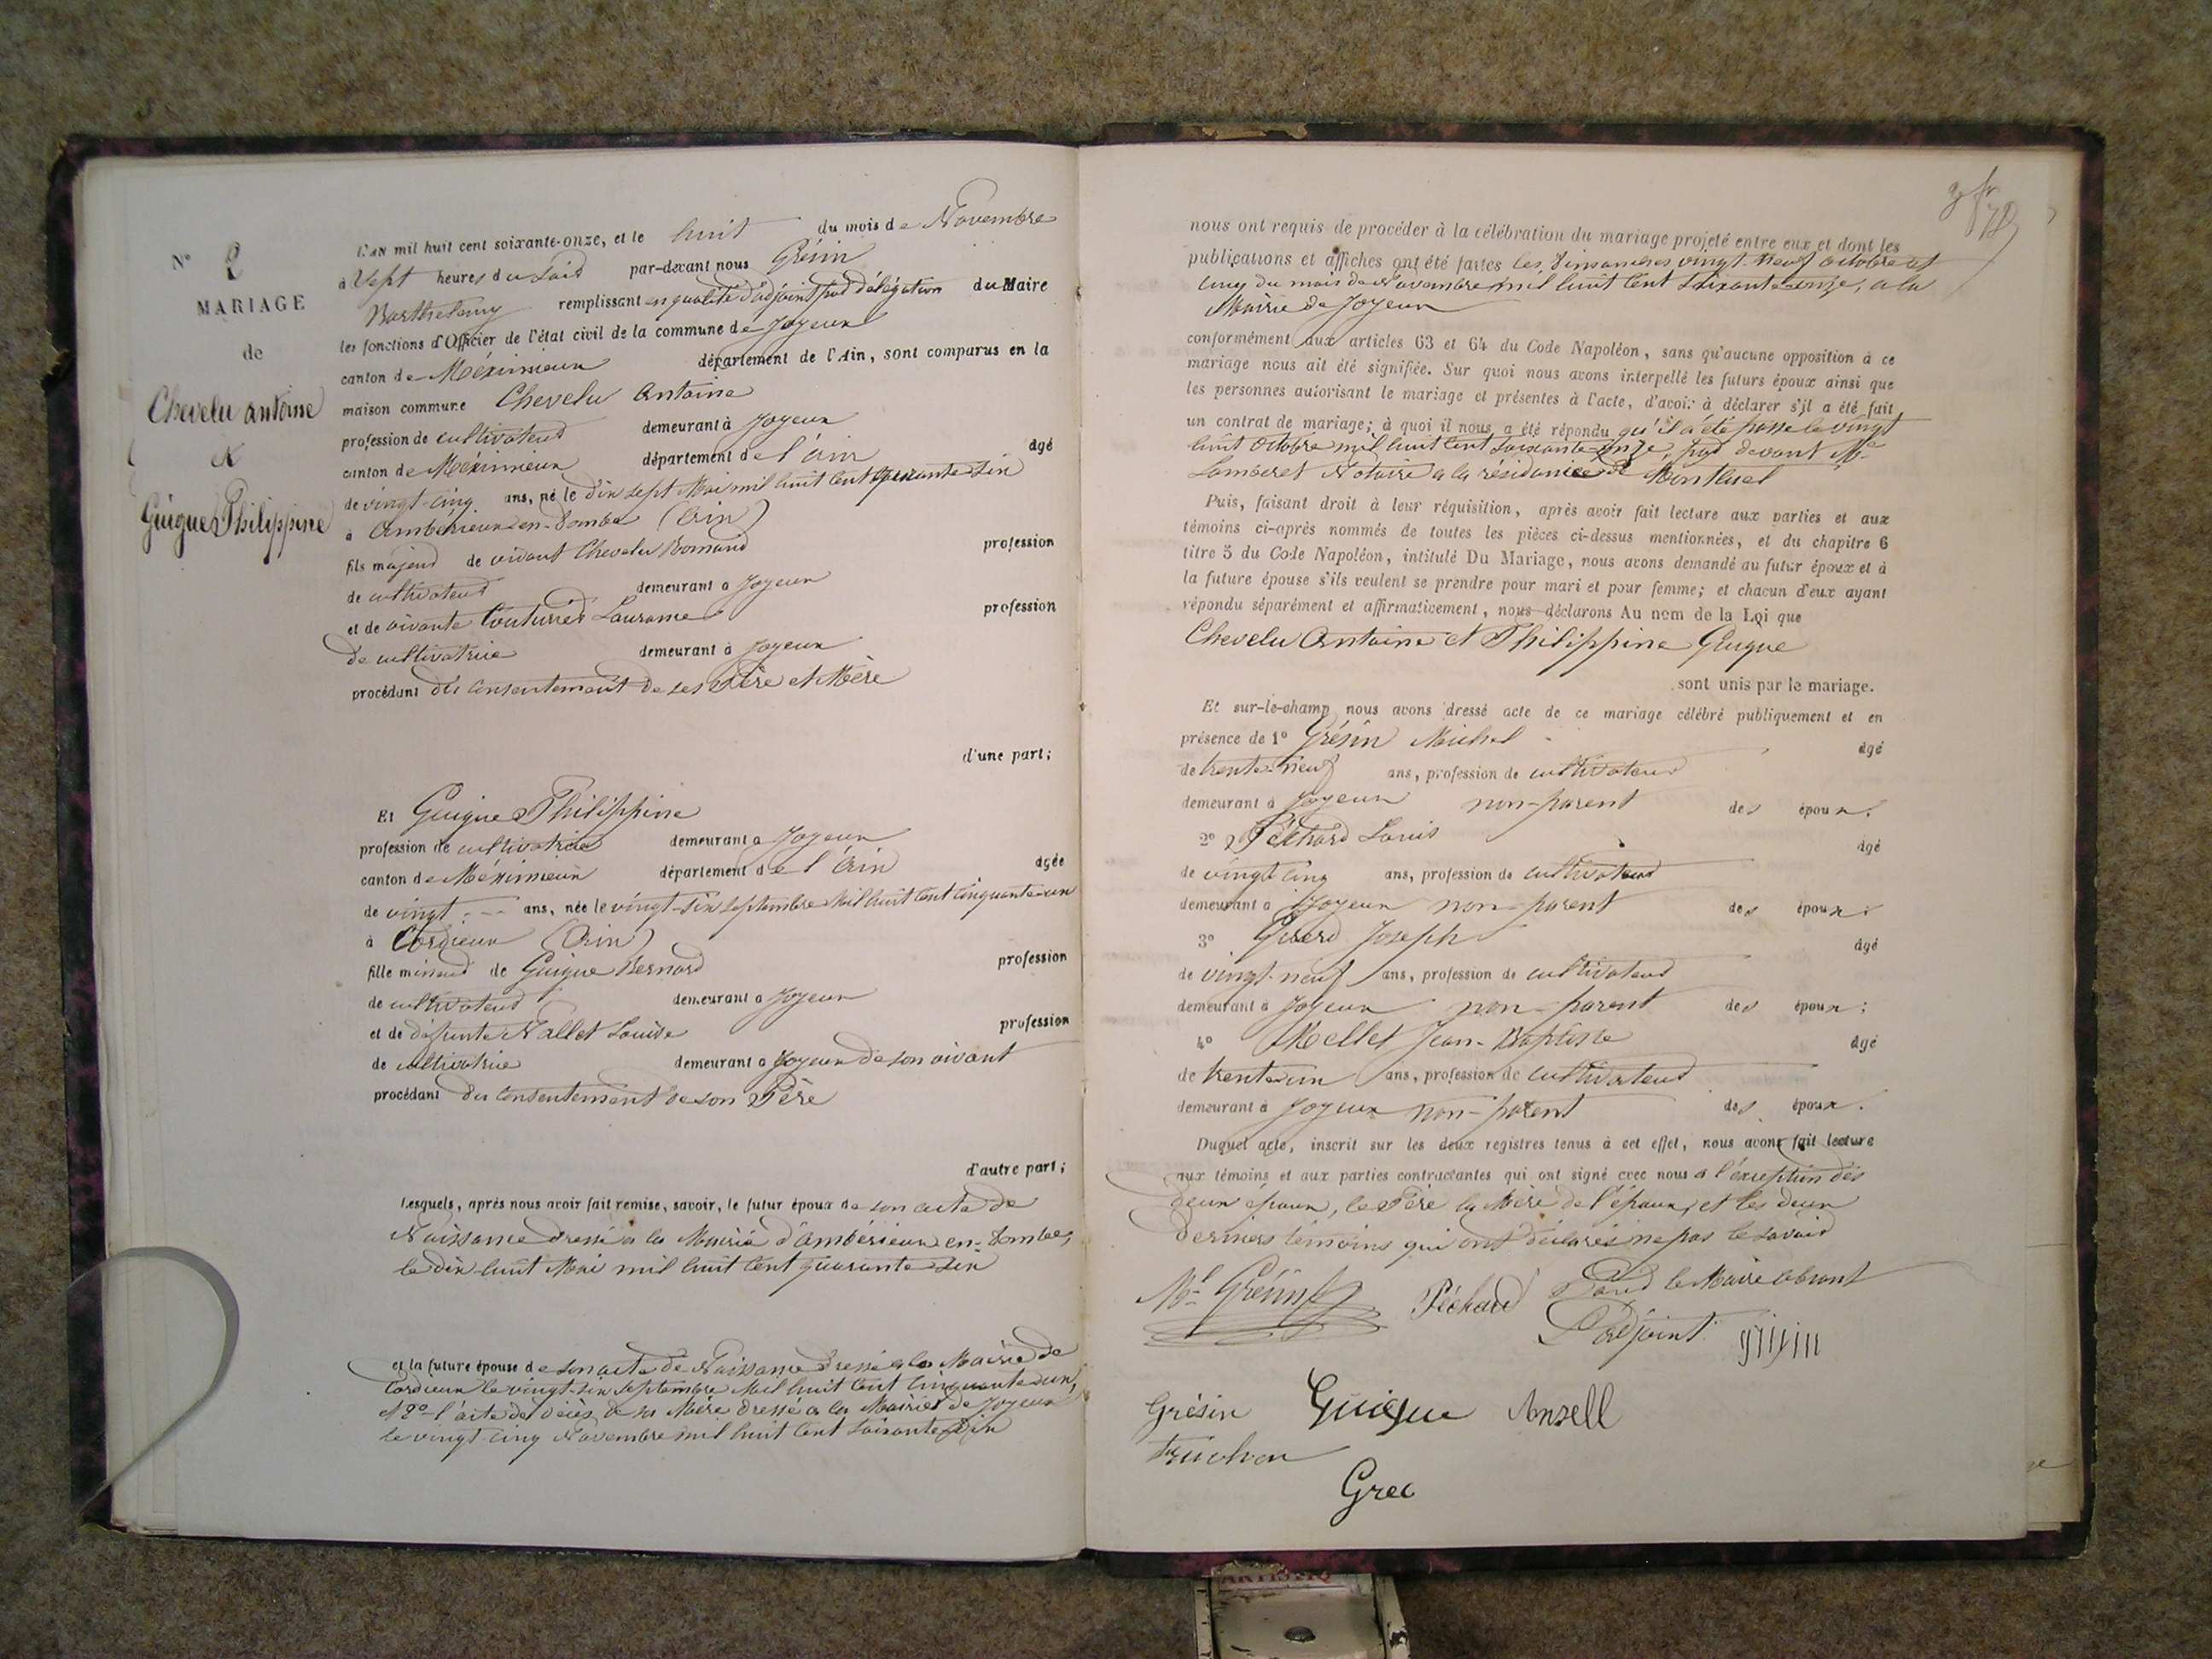 N° 2
MARIAGE
de
Chevelu antoine
&
Guigue Philippine
L'AN mil huit cent soixante-onze, et le huit du mois de Novembre
à Sept heures du Soir par-devant nous Grésin
Barthelemy remplissant en qualité d'adjoint par délégation du Maire
les fonctions d'Officier de l'état civil de la commune de Joyeux
canton de Méximieux département de l'Ain, sont comparus en la
maison commune Chevelu Antoine
profession de cultivateur demeurant à Joyeux
canton de Méximieux département de l'ain âgé
de vingt-cinq ans, né le dix sept Mai mil huit cent quarante six
à Ambérieux-en-Dombes (Ain)
fils majeur de vivant Chevelu Romand profession
de cultivateur demeurant à Joyeux
et de vivante Couturier profession
de cultivatrice demeurant à Joyeux
procédant du consentement de ses Père et Mère
d'une part;
Et Guigue Philippine
profession de cultivatrice demeurant à Joyeux
canton de Méximieux département de l'Ain âgée
de vingt ans, née le vingt-six septembre Mil huit cent cinquante-un
à Cordieux (Ain)
fille mineur de Guigue Bernard profession
de cultivateur demeurant à Joyeux
et de défunte Nallet Louise profession
de cultivatrice demeurant à Joyeux de son vivant
procédant du consentement de son Père
d'autre part;
Lesquels, après nous avoir fait remise, savoir, le futur époux de son acte de
Naissance dressé à la Mairie d'ambérieux-en-Dombes,
le dix-huit Mai mil huit cent quarante six
et la future épouse de son acte de Naissance dressé à la Mairie de
Cordieux le vingt-six septembre Mil huit cent cinquante-un,
et 2° l'acte de décès de sa Mère dressé à la Mairie de Joyeux
le vingt-cinq Novembre mil huit cent soixante-dix
nous ont requis de procéder à la célébration du mariage projeté entre eux et dont les
publications et affiches ont été faites les dimanches vingt-neuf octobre et
cinq du mois de Novembre mil huit cent soixante-onze, à la
Mairie de Joyeux
conformément aux articles 63 et 64 du Code Napoléon, sans qu'aucune opposition à ce
mariage nous ait été signifiée. Sur quoi nous avons interpellé les futurs époux ainsi que
les personnes autorisant le mariage et présentes à l'acte, d'avoir à déclarer s'il a été fait
un contrat de mariage; à quoi il nous a été répondu qu'il a été passé le vingt
huit Octobre mil huit cent soixante onze, par devant Me
Lamberet Notaire à la résidence de Montluel
Puis, faisant droit à leur réquisition, après avoir fait lecture aux parties et aux
témoins ci-après nommés de toutes les pièces ci-dessus mentionnées, et du chapitre 6
titre 5 du Code Napoléon, intitulé Du Mariage, nous avons demandé au futur époux et à
la future épouse s'ils veulent se prendre pour mari et pour femme; et chacun d'eux ayant
répondu séparément et affirmativement, nous déclarons Au nom de la Loi que
Chevelu Antoine et Philippine Guigue
sont unis par le mariage.
Et sur-le-champ nous avons dressé acte de ce mariage célébré publiquement et en
présence de 1° Grésin Michel âgé
de trente-neuf ans, profession de cultivateur
demeurant à Joyeux non-parent des époux.
2° Péchard Louis âgé
de vingt cinq ans, profession de cultivateur
demeurant à Joyeux non-parent des époux;
3° Joseph âgé
de vingt-neuf ans, profession de cultivateur
demeurant à Joyeux non-parent des époux;
4° Mellet Jean-Baptiste âgé
de trente-un ans, profession de cultivateur
demeurant à Joyeux non-parent des époux.
Duquel acte, inscrit sur les deux registres tenus à cet effet, nous avons fait lecture
aux témoins et aux parties contractantes qui ont signé avec nous à l'exception des
deux époux, le Père la Mère de l'époux, et les deux
derniers témoins qui ont déclarés ne pas le savoir
Ml Grésin Péchard Pour le Maire absent
L'adjoint
Grésin Guigue Ansell
Truchon
Grec